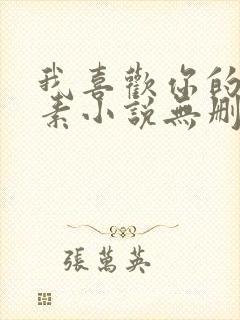 我喜歡你的
素小說無刪
張萬英